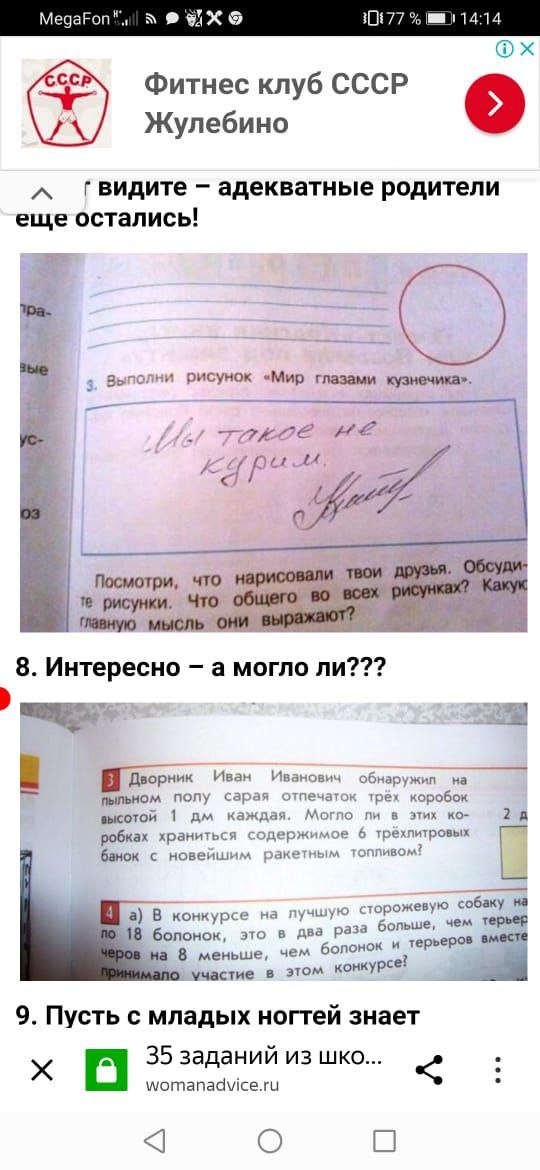 MegaFon
77 %
14:14
СССР
Фитнес клуб СССР
Жулебино
видите – адекватные родители
еще остались!
пра-
вые
ус-
оз
3. Выполни рисунок «Мир глазами кузнечика».
Мы такое не
курим.
Посмотри, что нарисовали твои друзья. Обсуди-
те рисунки. Что общего во всех рисунках? Какую
главную мысль они выражают?
8. Интересно – а могло ли???
3 Дворник Иван Иванович обнаружил на
пыльном полу сарая отпечаток трёх коробок
высотой 1 дм каждая. Могло ли в этих ко-
робках храниться содержимое 6 трёхлитровых
банок с новейшим ракетным топливом?
2 д
4 а) В конкурсе на лучшую сторожевую собаку на
ло 18 болонок, это в два раза больше, чем терьер
черов на 8 меньше, чем болонок и терьеров вместе
принимало участие в этом конкурсе?
9. Пусть с младых ногтей знает
35 заданий из шко...
womanadvice.ru